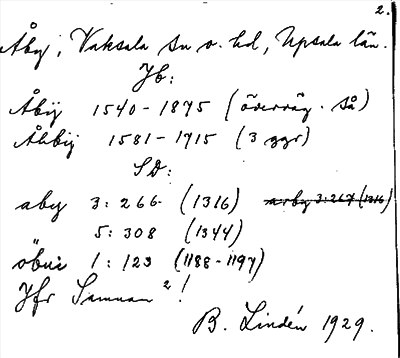 2.
Åby, Vaksala sn o. hd, Upsala län.
Jb:
Åbÿ 1540-1875 (överväg. så)
Åhbÿ 1581-1715 (3 ggr)
SD:
aby 3:266 (1316) arby 3:267 (1316)
5:308 (1344)
öbui 1:123 (1188-1197)
Jfr Samnan 2!
B. Lindén 1929.